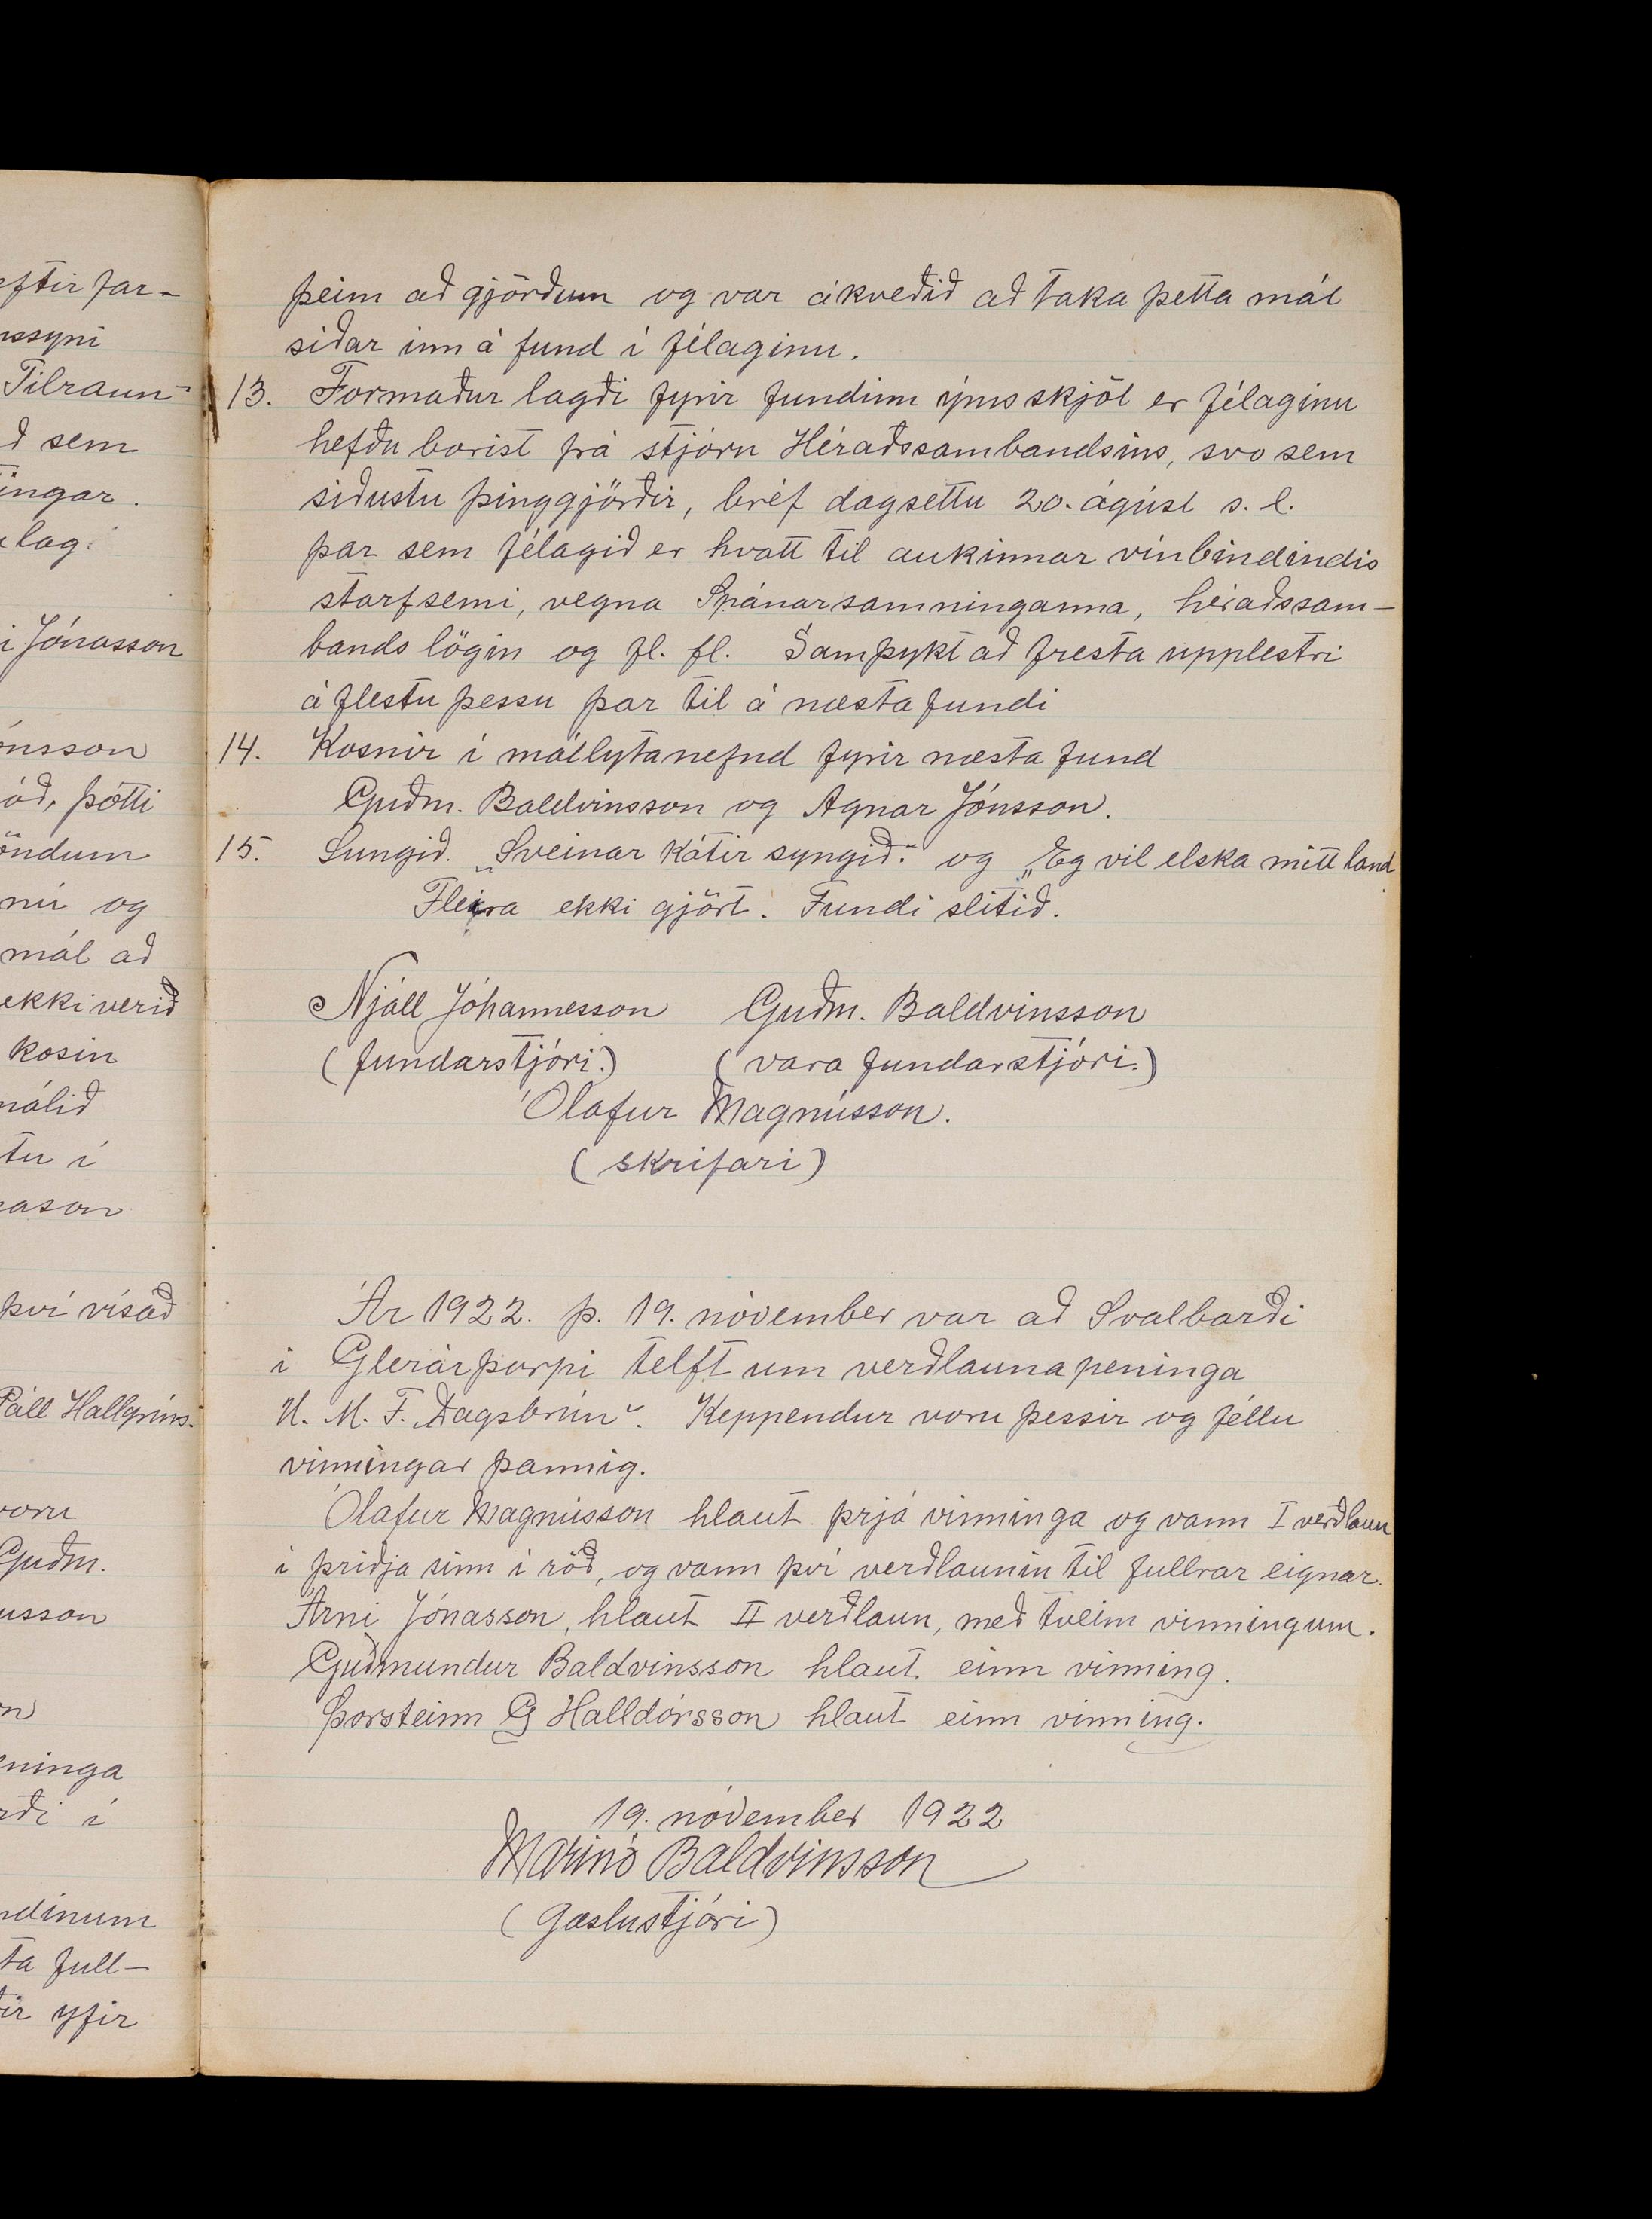 eftir far-
nssyni
Tilraun-
ð sem
ingar.
lag
i Jónasson
ónsson
óð, þótti
öndum
nú og
mál að
ekki verið
kosin
málið
tu í
eason
því vísað
Páll Hallgríms.
voru
Guðm.
usson
n
eninga
rði í
ndinum
ta full-
tir yfir
þeim að gjörðum og var ákveðið að taka þetta mál
síðar inn á fund í félaginu.
13. Formaður lagði fyrir fundinn ýms skjöl er félaginu
hefðu borist frá stjórn Héraðssambandsins, svo sem
síðustu þinggjörðir, bréf dagsettu 20. ágúst s. l.
þar sem félagið er hvatt til aukinnar vínbindindis
starfsemi, vegna Spánarsamninganna, héraðssam-
bands lögin og fl. fl. Samþykt að fresta upplestri
á flestu þessu þar til á næsta fundi
14. Kosnir í mállýtanefnd fyrir næsta fund
Guðm. Baldvinsson og Agnar Jónsson.
15. Sungið. „Sveinar kátir syngið.“ og „Eg vil elska mitt land
Fleira ekki gjört. Fundi slitið.
Njáll Jóhannesson Guðm. Baldvinsson
(fundarstjóri.) (vara fundarstjóri.)
Ólafur Magnússon.
(skrifari)
Ár 1922. þ. 19. nóvember var að Svalbarði
í Glerárþorpi telft um verðlaunapeninga
U. M. F. „Dagsbrún“. Keppendur voru þessir og féllu
vinningar þannig.
Ólafur Magnússon hlaut þrjá vinninga og vann I verðlaun
í þriðja sinn í röð, og vann því verðlaunin til fullrar eignar.
Árni Jónasson, hlaut II verðlaun, með tveim vinningum.
Guðmundur Baldvinsson hlaut einn vinning.
Þorsteinn G Halldórsson hlaut einn vinning.
19. nóvember 1922
Marinó Baldvinsson
(gæslustjóri)